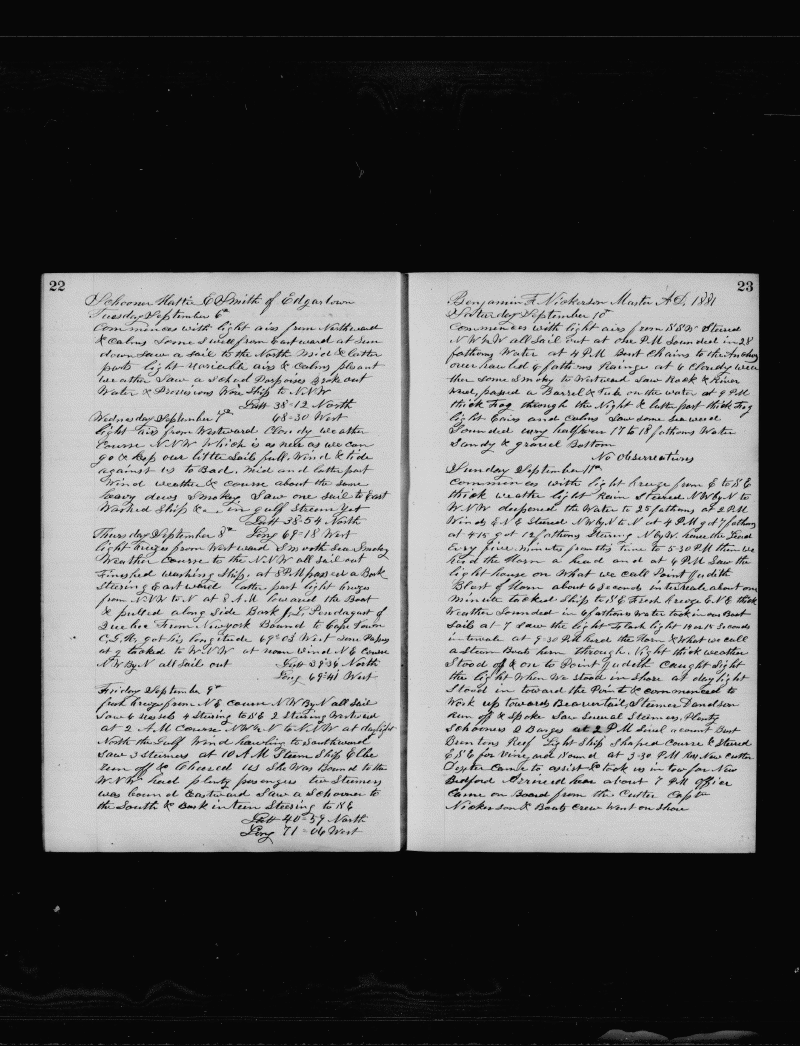 22
Schooner Hattie E Smith of Edgartown
Tuesday September 6th
Commences with light airs from Northward
& Calms Some Swell from Eastward at Sun
down Saw a sail to the North Mid & latter
parts light variable airs & calms plesant
weather Saw a School Porpoises Broke out
Water & Provisions Wore Ship to NNW
Latt 38-12 North
Wednesday September 7th 68-30 West
light airs from Westward Cloudy weather
Course NNW Which is as near as we can
go & keep our little Sails full. Wind & tide
against us to Bad. Mid and latter part
Wind weather & course about the same
heavy dews Smokey Saw one sail to East
Washed Ship &c in gulf Steem yet
Latt 38-54 North
Thursday September 8th Long 69-18 West
light breezes from Westward Smooth Sea Smokey
Weather Course to the NNW all Sail out
Finished washing Ship. at 8 PM passed a Bark
Steering Eastward latter part light breezes
from NNW to N at 8 AM lowered the Boat
& pulled along Side Bark J. L. Pendagast of
Quebec From Newyork Bound to Cape Town
C.G.H. got his longitude 69°03 West some Papers
at 9 tacked to WNW at noon wind NE Course
NW By N all Sails out Latt 39°34 North
Long 69°41 West
Friday September 9th
fresh breezes from NE course NW By N all Sail
Saw 6 vessels 4 Steering to SE 2 Steering Westward
at 2 AM Course NW by N to NNW at daylight
North the Gulf Wind hawling to Southward
Saw 3 Steemers at 10 AM Steem Ship Elbe
run off & Cheered us She Was Bound to the
WNW had plenty passengers two Steemers
was bound Eastward Saw a Schooner to
the South & Barkenteen Steering to SE
Latt 40-59 North
Long 71-06 West
23
Benjamin F. Nickerson Master A.D. 1881
Saturday September 10th
Commences with light airs from SSW Steered
NWNW all Sail out at one PM Sounded in 28
fathoms Water at 4 PM Bent Chains to the Anchors
overhauled 6 fathoms Range at 6 Cloudy wea
ther some Smoky to Westward Saw Rock & River
weed, passed a Barrel & Tub on the water at 9 PM
thick Fog through the Night & latter part thick Fog
light Airs and Calms Saw some seaweed
Sounded every half hour 17 to 18 fathoms Water
Sandy & gravel Bottom
No Observations
Sunday September 11th
Commences with light breeze from E to SE
thick weather light Rain Steered NW by N to
WNW deepened the Water to 25 fathoms at 2 PM
Winds ENE Steered NW by N to N at 4 PM got 7 fathoms
at 4-15 got 12 fathoms Steering N by W hove the Lead
Every five minutes from this time to 5-30 PM then we
herd the Horn a head and at 6 PM Saw the
light house on What we call Point Judith
Blast of Horn about 6 Seconds intervals about one
Minute tacked Ship to SE Fresh breeze ENE thick
Weather Sounded in 6 fathoms Water took in our Boat
Sails at 7 saw the light Flash light 14 or 15 Seconds
intervals at 9-30 PM herd the Horn & What we call
a Steem Boats horn through Night thick weather
Stood off & on to Point Judith Caught Sight
the light When We stood in Shore at day light
Stood in toward the Point & commenced to
Work up towards Beavertail, Steemer Dandson
run off & Spoke Saw several Steemers, Plenty
Schooners & Barges at 2 PM Sinel account Bent
Brentons Reef Light Ship Shaped Course & Steered
ESE for Vineyard Sound at 3-30 PM Rev New Cutter
Dexter Came to assist & took us in tow for New
Bedford Arrived hear about 7 PM officer
Came on Board from the Cutter Captn
Nickerson & Boats Crew Went on Shore